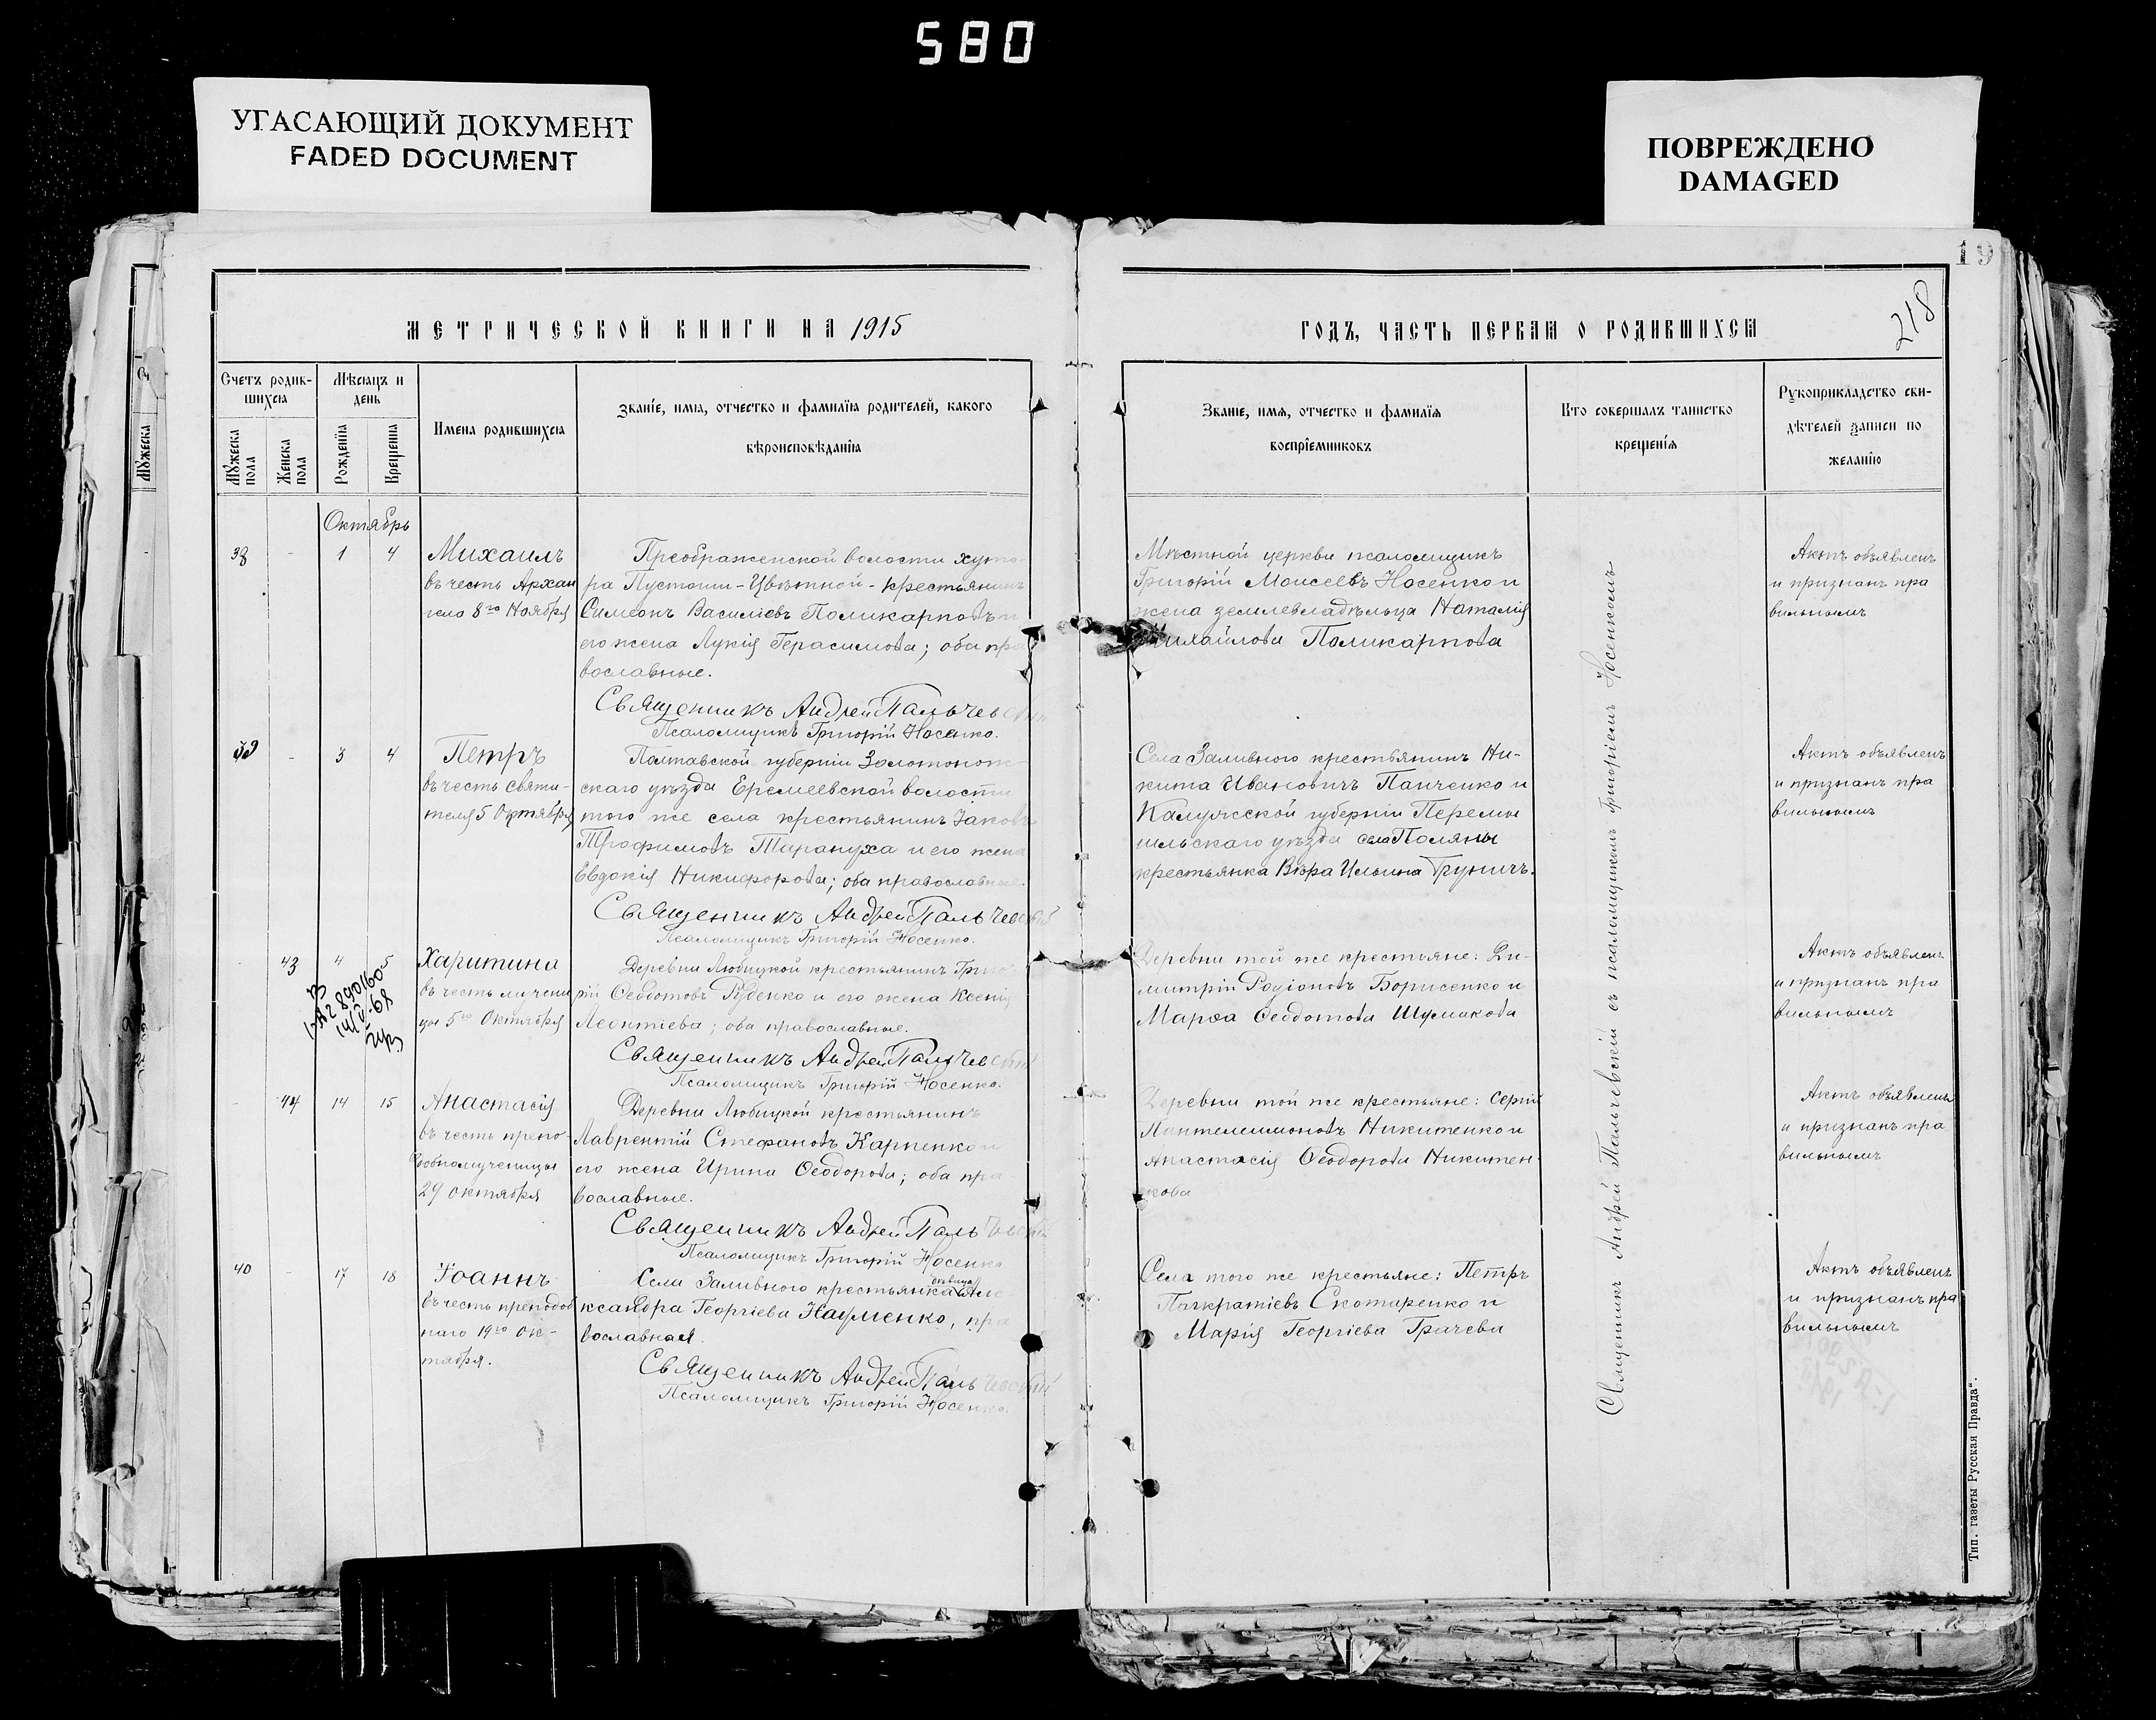 580
УГАСАЮЩИЙ ДОКУМЕНТ
FADED DOCUMENT
ПОВРЕЖДЕНО
DAMAGED
19
218
МЕТРИЧЕСКОЙ КНИГИ НА 1915
Счетъ родив-
шихся
Мѣсяцъ и
день
Мужеска
пола
Женска
пола
Рожденія
Крещенія
Имена родившихся
Званіе, имя, отчество и фамилія родителей, какого
вѣроисповѣданія
Октябрь
38 - 1 4
Михаилъ
въ честь Архан
гела 8го Ноября
Преображенской волости хуто-
ра Пустоши-Цвѣтной-крестьянинъ
Симеонъ Василіевъ Поликарповъ и
его жена Лукія Герасимова; оба пра
вославные.
Священникъ Андрей Пальчевскій
Псаломщикъ Григорій Носенко.
39 - 3 4
Петръ
въ честь святи-
теля 5 Октября
Полтавской губерніи Золотонош-
скаго уѣзда Еремеевской волости
того же села крестьянинъ Іаковъ
Трофимовъ Тарануха и его жена
Евдокія Никифорова; оба православные.
Священникъ Андрей Пальчевскій
Псаломщикъ Григорій Носенко.
- 43 4 5
Харитина
въ честь мучени
цы 5го Октября
Деревни Любицкой крестьянинъ Григо-
рій Ѳеодотовъ Руденко и его жена Ксенія
Леонтіева; оба православные.
Священникъ Андрей Пальчевскій
Псаломщикъ Григорій Носенко.
- 44 14 15
Анастасія
въ честь препо-
добномученицы
29 октября
Деревни Любицкой крестьянинъ
Лаврентій Стефановъ Карпенко и
его жена Ирина Ѳеодорова; оба пра
вославные.
Священникъ Андрей Пальчевскій
Псаломщикъ Григорій Носенко
40 - 17 18
Іоаннъ
въ честь преподоб
наго 19го Ок-
тября.
Села Заливного крестьянка девица Але-
ксандра Георгіева Науменко, пра
вославная.
Священникъ Андрей Пальчевскій
Псаломщикъ Григорій Носенко.
ГОДЪ, ЧАСТЬ ПЕРВАЯ О РОДИВШИХСЯ
Званіе, имя, отчество и фамилія
воспріемниковъ
Кто совершалъ таинство
крещенія
Рукоприкладство сви-
дѣтелей записи по
желанію
Мѣстной церкви псаломщикъ
Григорій Моисеевъ Носенко и
жена землевладѣльца Наталія
Михайлова Поликарпова
Актъ объявленъ
и признанъ пра
вильнымъ
Села Заливного крестьянинъ Ни-
кита Ивановичъ Панченко и
Калужской губерніи Перемы
шльскаго уѣзда села Поляны
крестьянка Вѣра Ильина Груничъ.
Актъ объявленъ
и признанъ пра
вильнымъ
Деревни той же крестьяне: Ди-
митрій Родіоновъ Борисенко и
Марѳа Ѳеодотова Шумакова
Актъ объявленъ
и признанъ пра
вильнымъ
Деревни той же крестьяне: Сергій
Пантелеимоновъ Никитенко и
Анастасія Ѳеодорова Никитен-
кова
Актъ объявленъ
и признанъ пра
вильнымъ
Села того же крестьяне: Петръ
Панкратіевъ Скотаренко и
Марія Георгіева Грачева
Актъ объявленъ
и признанъ пра
вильнымъ
Священникъ Андрей Пальчевскій съ псаломщикомъ Григоріемъ Носенкомъ
Тип. газеты Русская Правда".